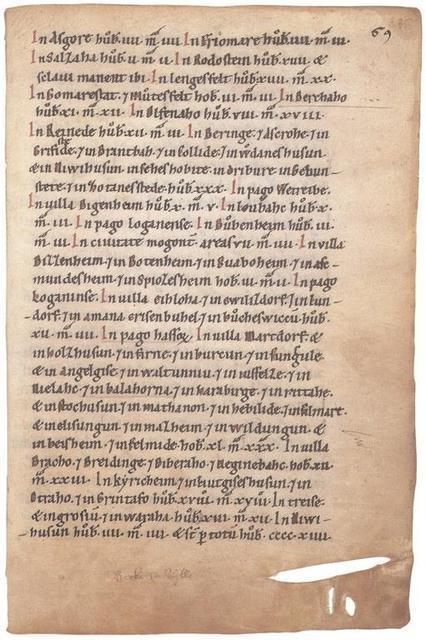 69
In Asgore hůb. VII. m̄. VII. In Griomare hůb. VIII. m̄. III.
In Salzaha hůb. V. m̄. II. In Rodostein hůb. XVII. &
sclavi manent ibi. In lengesfelt hůb. XVII. m̄. XX.
In Gomarestat. ⁊ Mŭtesfelt hob. VI. m̄. III. In Berchaho
hůb. XI. m̄. XII. In Olfenaho hůb. VIII. m̄. XVIII.
In Reinede hůb. XII. m̄. III. In Beringe. ⁊ Ascrohe. ⁊ in
Grifide. ⁊ in Brantbah. ⁊ in Collide. ⁊ in wdaneshusun.
& in Niwihusun. in seheshobite. in Oribure. in Gebun-
stete. ⁊ in hotanestede. hůb. XXX. In pago Werreibe.
In villa Bigenheim hůb. X. m̄. V. In loubahc hůb. X.
m̄. III. In pago loganense. In Bůbenheim hůb. III.
m̄. III. In civitate mogont. areas VII. m̄. III. In villa
Dizenheim. ⁊ in Botenheim. ⁊ in Suaboheim. ⁊ in asc-
mundesheim. ⁊ in Spiozesheim hob. VI. m̄. II. In pago
loganinse. In villa eihloha. ⁊ in ewilizdorf. ⁊ in lun-
dorf. ⁊ in amana erisenbuhel. ⁊ in bůcheswicců. hůb.
XV. m̄. VII. In pago hassoɤ. In villa Marcdorf. &
in holzhusun. ⁊ in firne. ⁊ in burcun. ⁊ in sungule.
& in angelgise. ⁊ in waltunniu. ⁊ in niffelze. ⁊ in
Nielahc. ⁊ in balahorna. ⁊ in haraburge. ⁊ in rittahe.
& in stochusun. ⁊ in mathanon. ⁊ in hebilide. ⁊ in selmare.
& in elisungun. ⁊ in mazheim. ⁊ in wildungun. &
in beisheim. ⁊ in felmide. hob. XL. m̄. XXX. In villa
Bracho. ⁊ Breidinge. ⁊ Biberaho. ⁊ Reginebahc. hob. XII.
m̄. XXIII. In kyricheim. ⁊ in luitgiseshusun. ⁊ in
Otraho. ⁊ in Grintafo hůb. XVIII. m̄. XVIII. In treise.
& in grosiu. ⁊ in waraha. hůb. XVI. m̄. XII. In Niwi-
husun hůb. III. m̄. III. & sc̄t p totū hůb. CCCC. XVII.